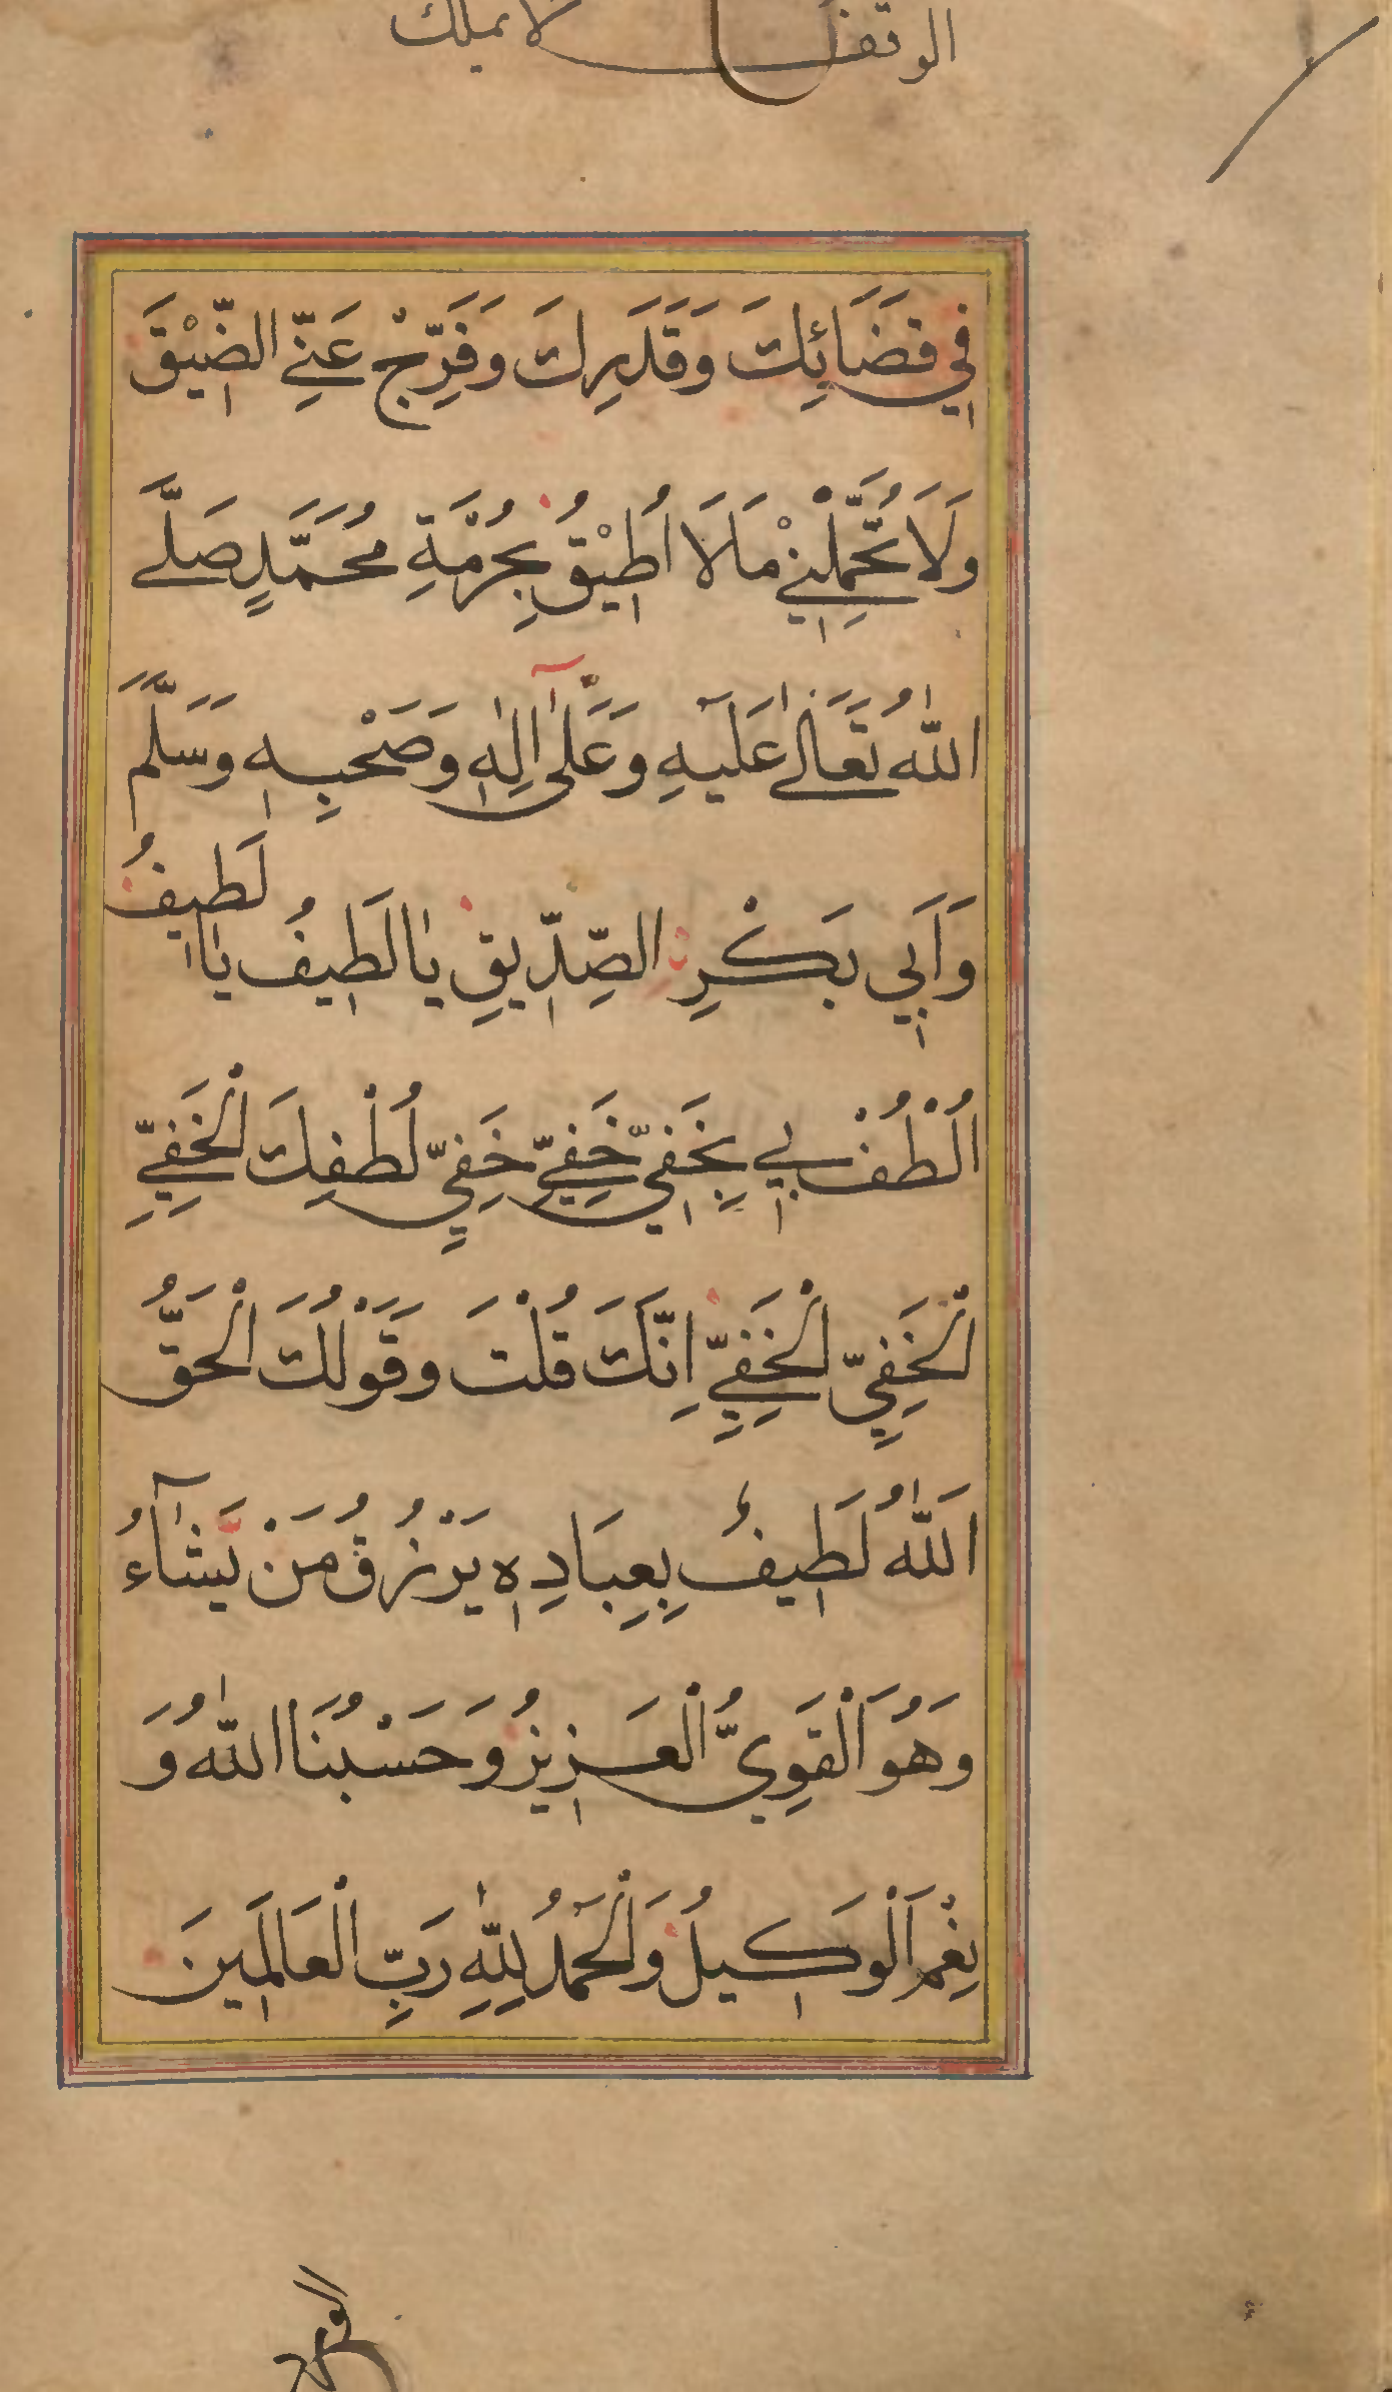 الوقف لا يملك
فِي قَضَائِكَ وَقَدَرِكَ وَفَرِّجْ عَنِّي الضِّيْقَ
وَلَا تُحَمِّلْنِي مَا لَا اُطِيْقُ بِحُرْمَةِ مُحَمَّدٍ صَلَّى
اللّٰهُ تَعَالٰى عَلَيْهِ وَعَلٰى اٰلِهٖ وَصَحْبِهٖ وَسَلَّمَ
وَاَبِي بَكْرِ الصِّدِّيقِ يَا لَطِيفُ يَا لَطِيفُ
اُلْطُفْ بِي بِخَفِيِّ خَفِيِّ خَفِيِّ لُطْفِكَ الْخَفِيِّ
الْخَفِيِّ الْخَفِيِّ اِنَّكَ قُلْتَ وَقَوْلُكَ الْحَقُّ
اَللّٰهُ لَطِيفٌ بِعِبَادِهٖ يَرْزُقُ مَنْ يَشَآءُ
وَهُوَ الْقَوِيُّ الْعَزِيزُ وَحَسْبُنَا اللّٰهُ وَ
نِعْمَ الْوَكِيلُ وَالْحَمْدُ لِلّٰهِ رَبِّ الْعَالَمِينَ